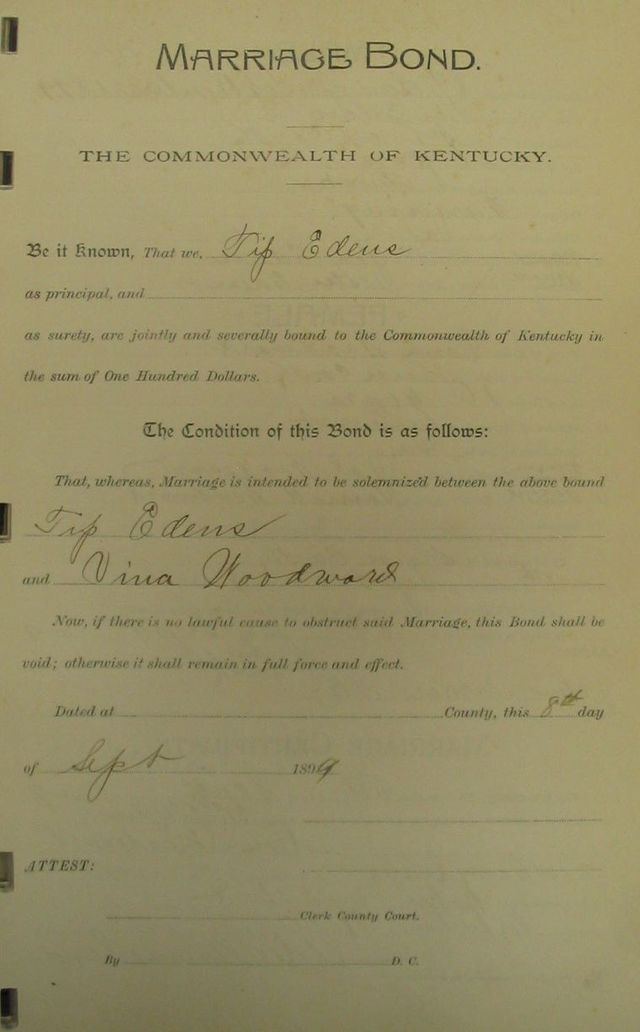 MARRIAGE BOND.
THE COMMONWEALTH OF KENTUCKY.
Be it Known, That we, Tip Edens
as principal, and
as surety, are jointly and severally bound to the Commonwealth of Kentucky in
the sum of One Hundred Dollars.
The Condition of this Bond is as follows:
That, whereas, Marriage is intended to be solemnized between the above bound
Tip Edens
and Vina Woodward
Now, if there is no lawful cause to obstruct said Marriage, this Bond shall be
void; otherwise it shall remain in full force and effect.
Dated at County, this 8th day
of Sept 1899
ATTEST:
Clerk County Court.
By D. C.